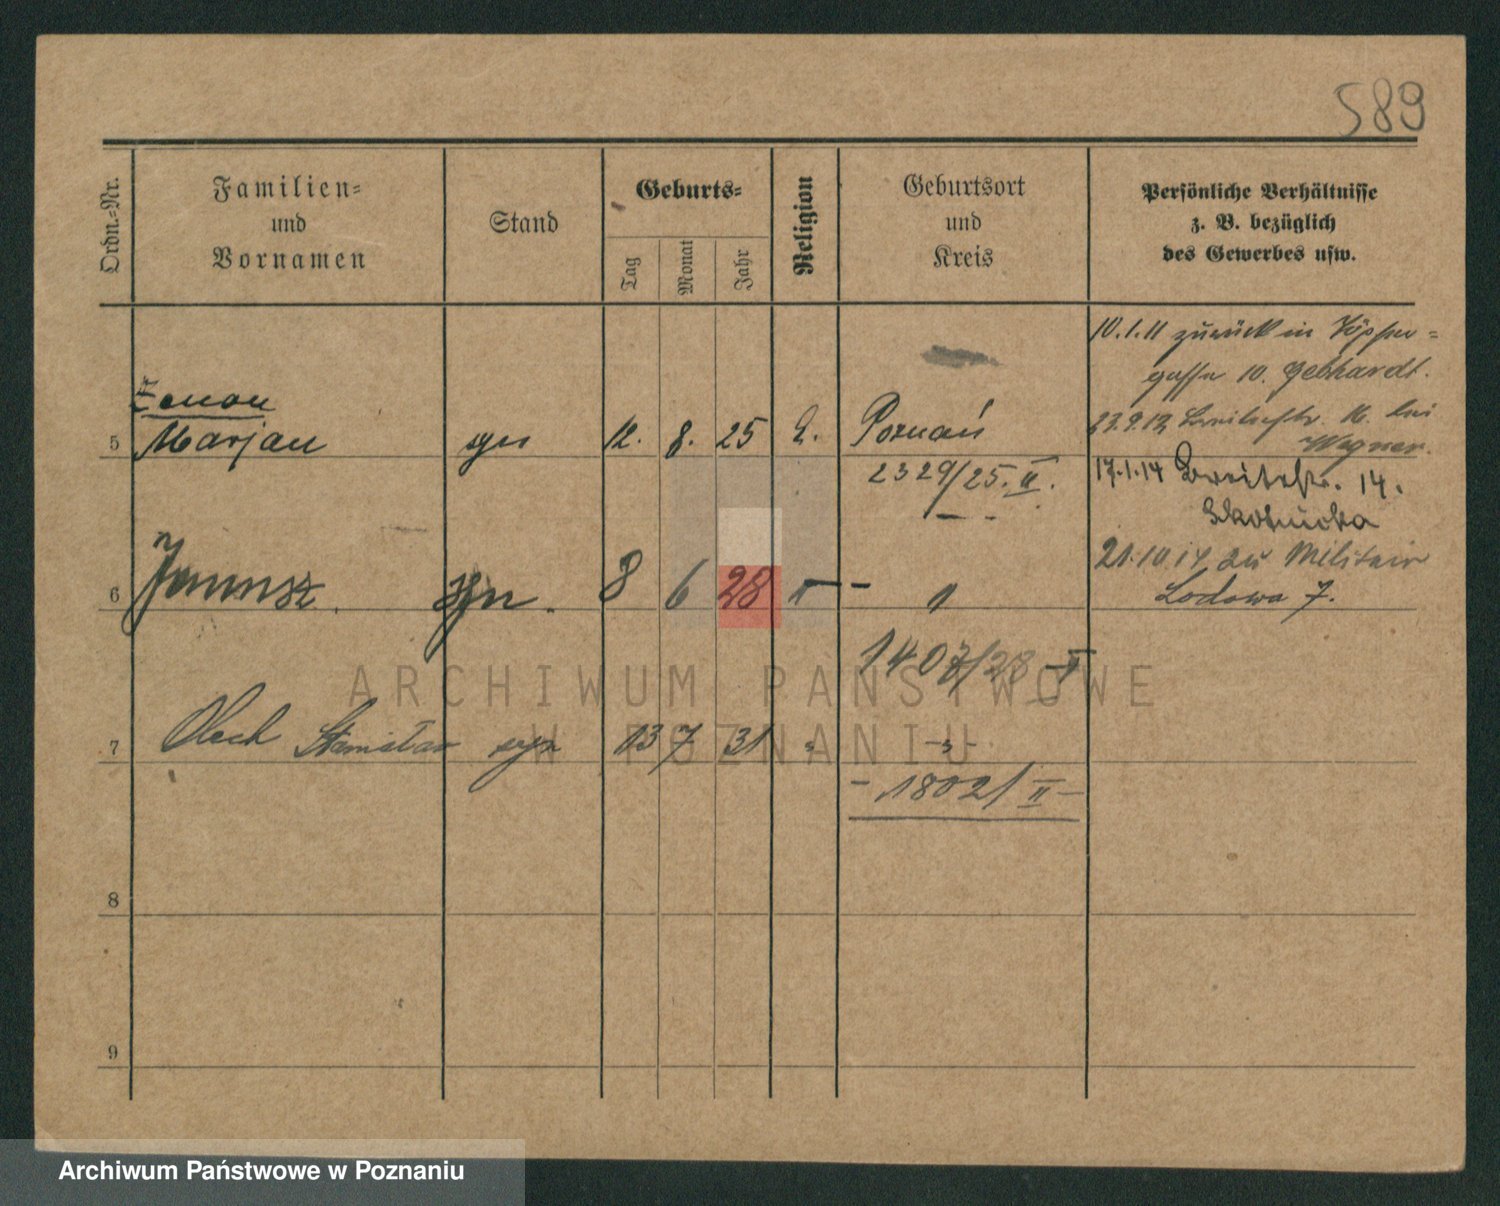 589
Ordn.-Nr.
Familien-
und
Vornamen
Stand
Geburts-
Tag
Monat
Jahr
Religion
Geburtsort
und
Kreis
Persönliche Verhältnisse
z. B. bezüglich
des Gewerbes usw.
10.1.11 zurück in Töpfer-
gasse 10. Gebhardt.
23.9.13 Breitestr. 16. bei
Wegner.
17.1.14 Breitestr. 14.
21.10.14 zu Militair
Zenon
5 Marjan syn 12. 8. 25 Poznań
2329/25. II.
6 Janusz. syn. 8 6 28
1407/28 II
7 Olech Stanisław syn 13 7 31
- 1802/ II -
8
9
ARCHIWUM PAŃSTWOWE
W POZNANIU
Archiwum Państwowe w Poznaniu